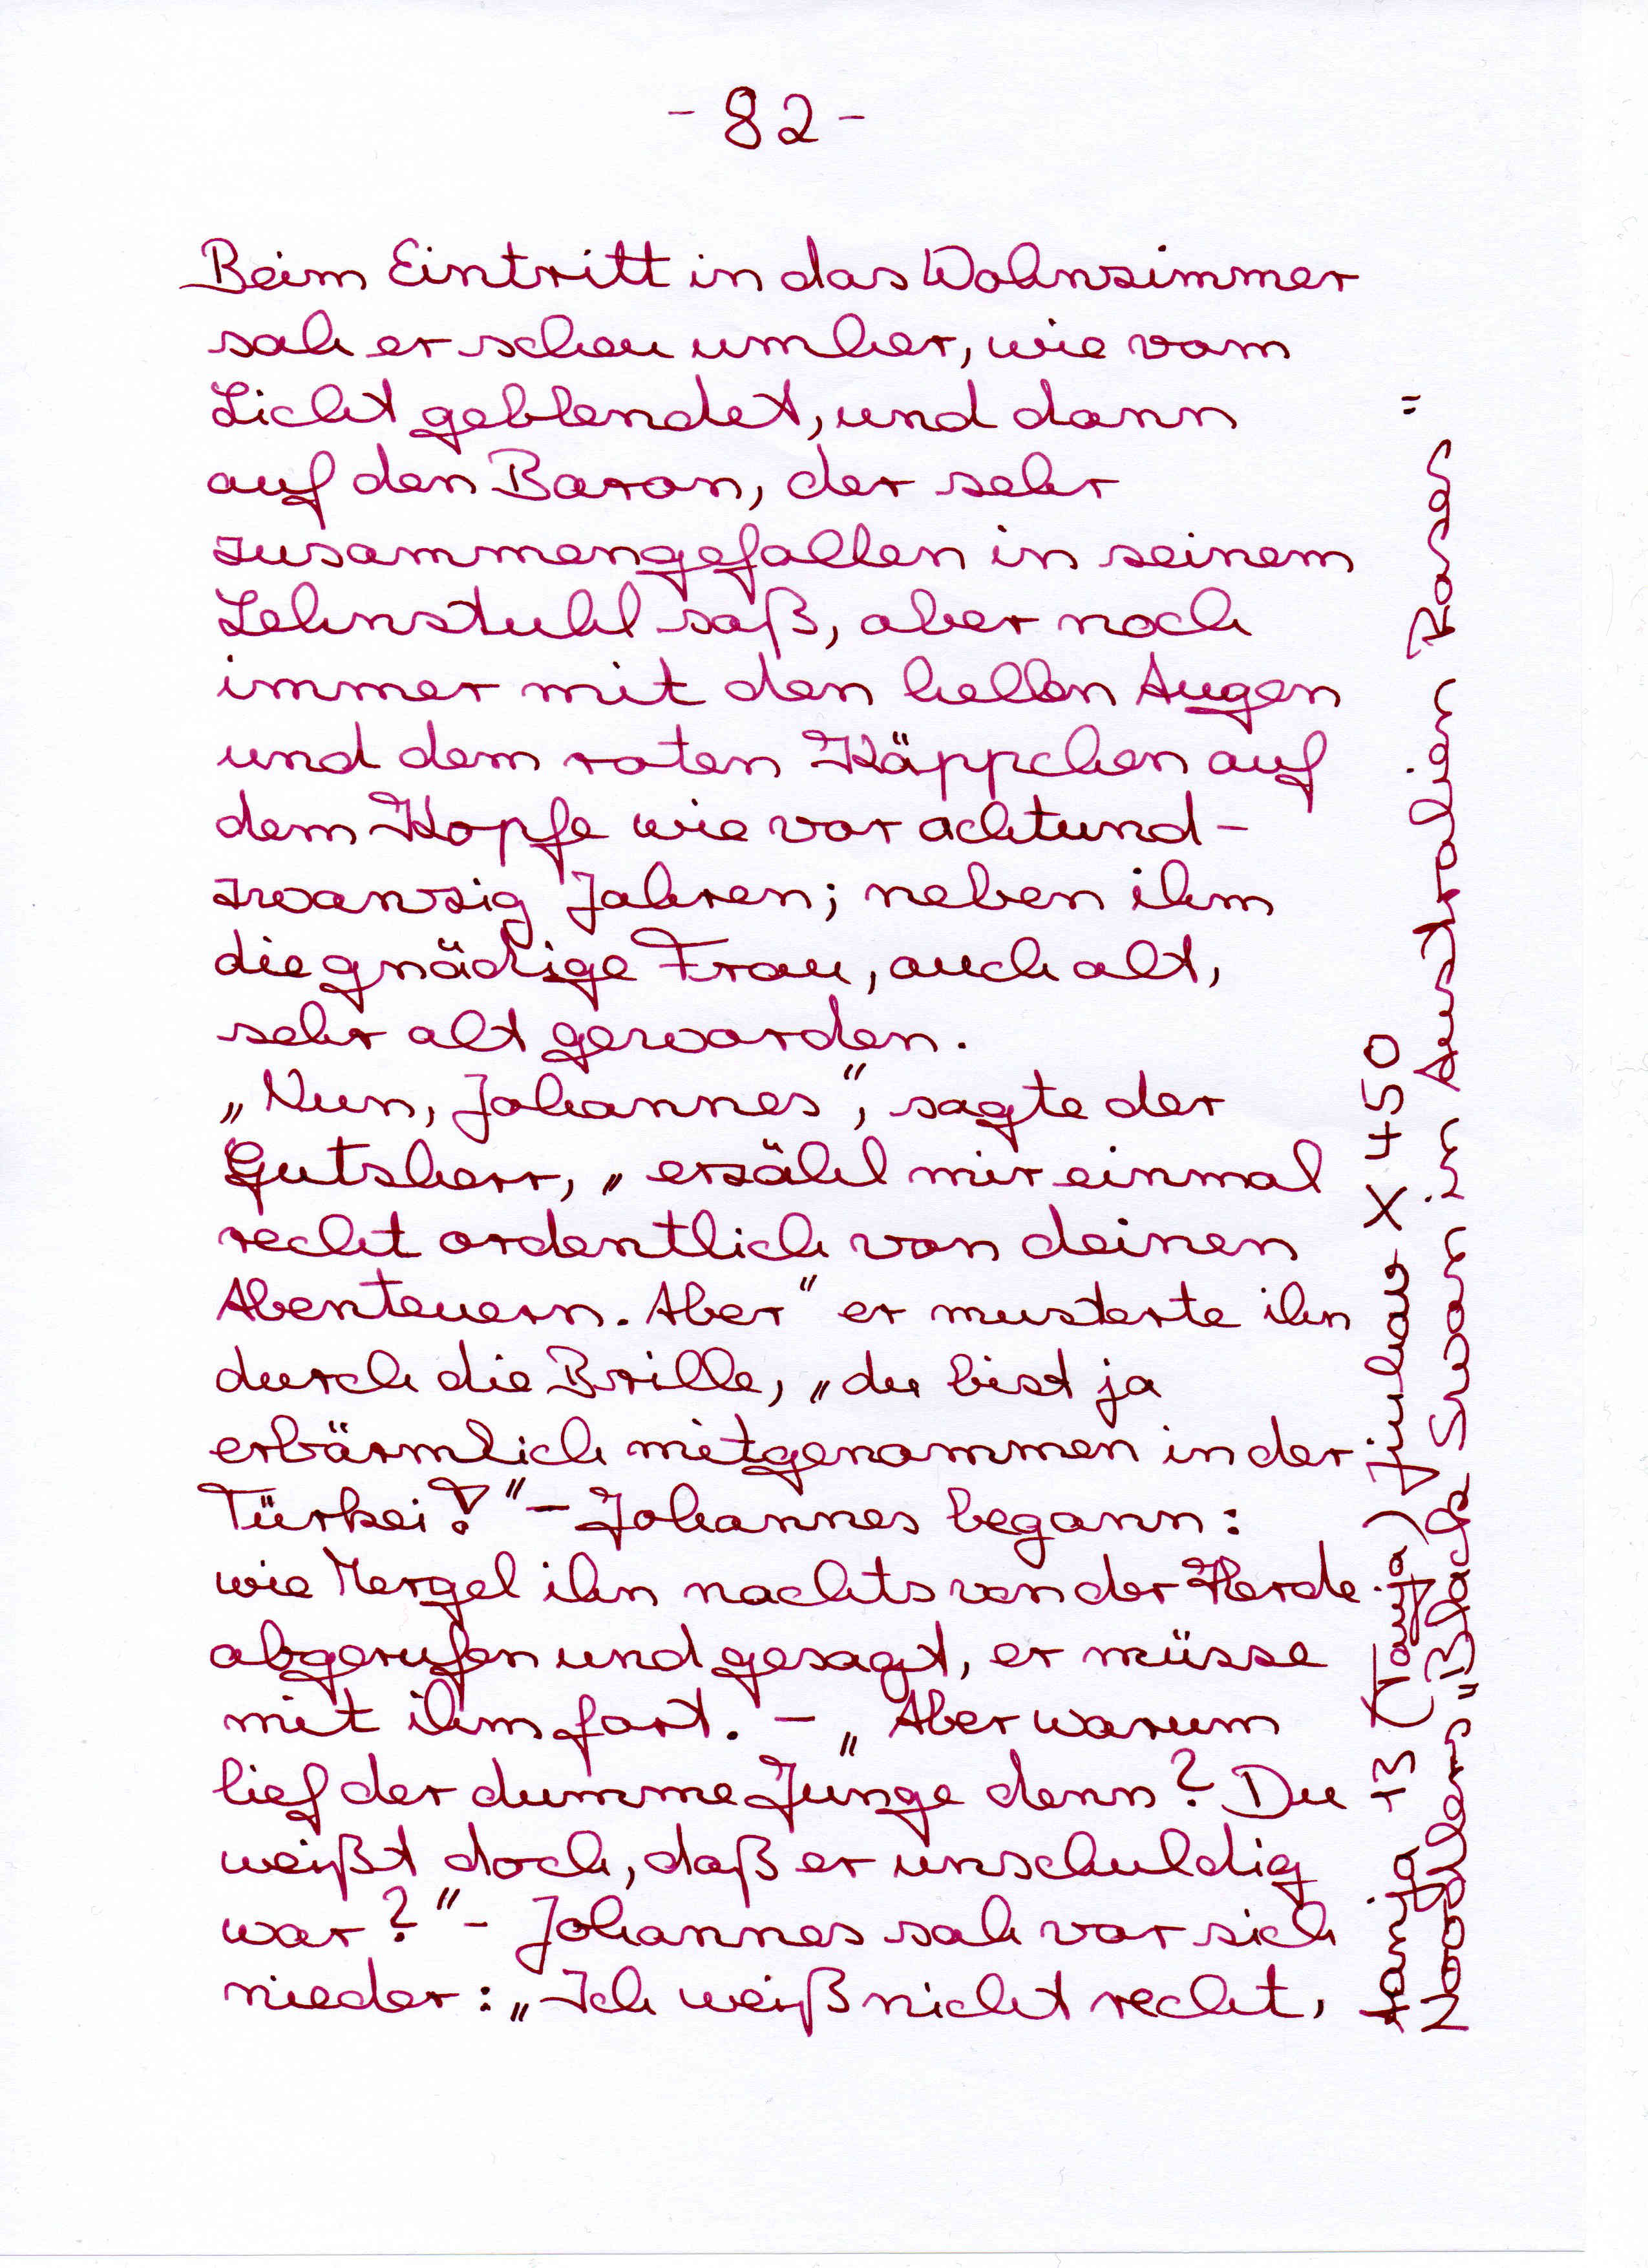 - 82 -
Beim Eintritt in das Wohnzimmer
sah er scheu umher, wie vom
Licht geblendet, und dann
auf den Baron, der sehr
zusammengefallen in seinem
Lehnstuhl saß, aber noch
immer mit den hellen Augen
und dem roten Käppchen auf
dem Kopfe wie vor achtund-
zwanzig Jahren; neben ihm
die gnädige Frau, auch alt,
sehr alt geworden.
„Nun, Johannes“, sagte der
Gutsherr, „erzähl mir einmal
recht ordentlich von deinen
Abenteuern. Aber“ er musterte ihn
durch die Brille, „du bist ja
erbärmlich mitgenommen in der
Türkei!“ – Johannes begann:
wie Mergel ihn nachts von der Herde
abgerufen und gesagt, er müsse
mit ihm fort. – „Aber warum
lief der dumme Junge denn? Du
weißt doch, daß er unschuldig
war?“ – Johannes sah vor sich
nieder: „Ich weiß nicht recht,
Tanja 13 (Tanja) X 450
Noodlers „Black Swan in Australien Roses“